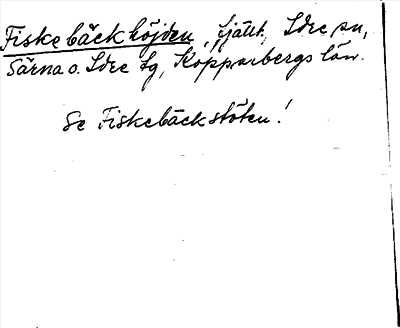 Fiskebäckhöjden, fjäll, Idre sn,
Särna o. Idre tg, Kopparbergs län.
Se Fiskebäckstöten!